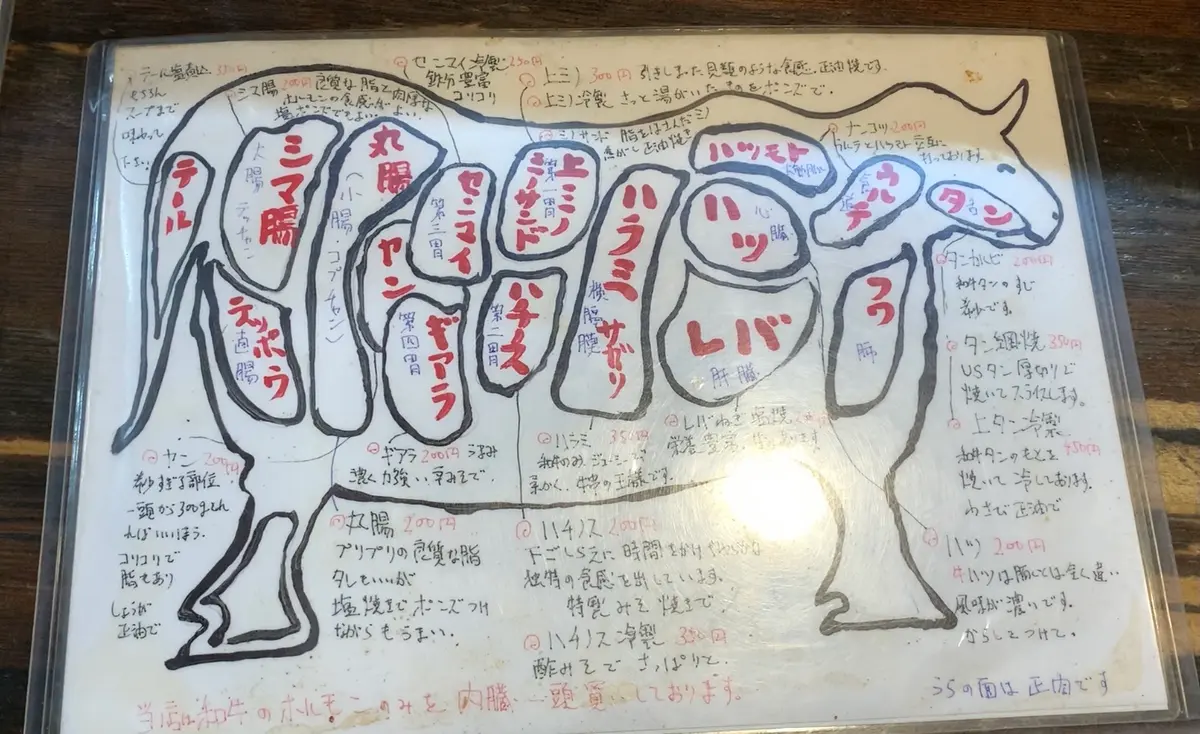 テール塩煮込 350円
もちろん
スープまで
味わって
下さい
シマ腸 200円 良質な脂で肉厚な
ホルモンの食感が
センマイ冷製 250円
鉄分豊富
コリコリ
上ミノ 300円 引きしまった貝類のような食感、正油焼です。
上ミノ冷製 さっと湯がいたものをポンズで。
ミノサンド 脂をはさんだミノ
ナンコツ 200円
ウルテとハツモト
テール
シマ腸
大腸 テッチャン
丸腸
(小腸・コプチャン)
センマイ
第三胃
上ミノ
ミノサンド
第一胃
ハラミ サガリ
横膈膜
ハツモト
ハツ
心臓
ウルテ
タン
舌
テッポウ
直腸
ヤン
ギアラ
第四胃
ハチノス
第二胃
レバ
肝臓
フワ
肺
タンカルビ 200円
和牛タンのすじ
タン網焼 350円
USタン厚切りで
焼いてスライスします。
上タン冷製
450円
和牛タンのもとを
焼いて冷しております。
わさび正油で
ハツ 200円
牛ハツは豚ハツとは全く違い
風味が濃いです。
からしをつけて。
ヤン 200円
希少すぎる部位
一頭から300gとれ
ればいいほう。
コリコリで
脂もあり
しょうが
正油で
ギアラ 200円 うまみ
濃く力強い辛みそで。
ハラミ 350円
和牛のみ ジューシーで
柔かく、牛串の王様です。
レバねぎ塩焼
栄養豊富
丸腸 200円
プリプリの良質な脂
タレもいいが
塩焼きでポンズつけ
ながらもうまい。
ハチノス 200円
下ごしらえに時間をかけ
独特の食感を出しています。
特製みそ焼きで。
ハチノス冷製 350円
酢みそでさっぱりと。
当店は和牛のホルモンのみを内臓一頭買いしております。
うらの面は正肉です